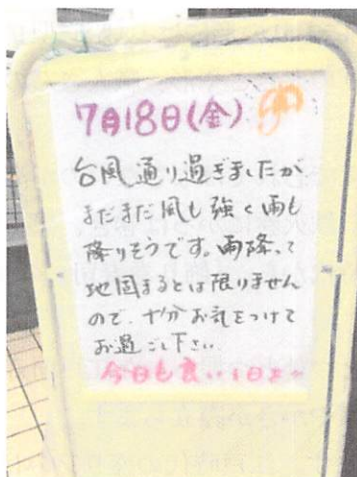 7月18日(金)
台風通り過ぎましたが
まだまだ風も強く雨も
降りそうです。雨降って
地固まるとは限りません
ので、十分お気をつけて
お過ごし下さい
今日も良い1日を〜